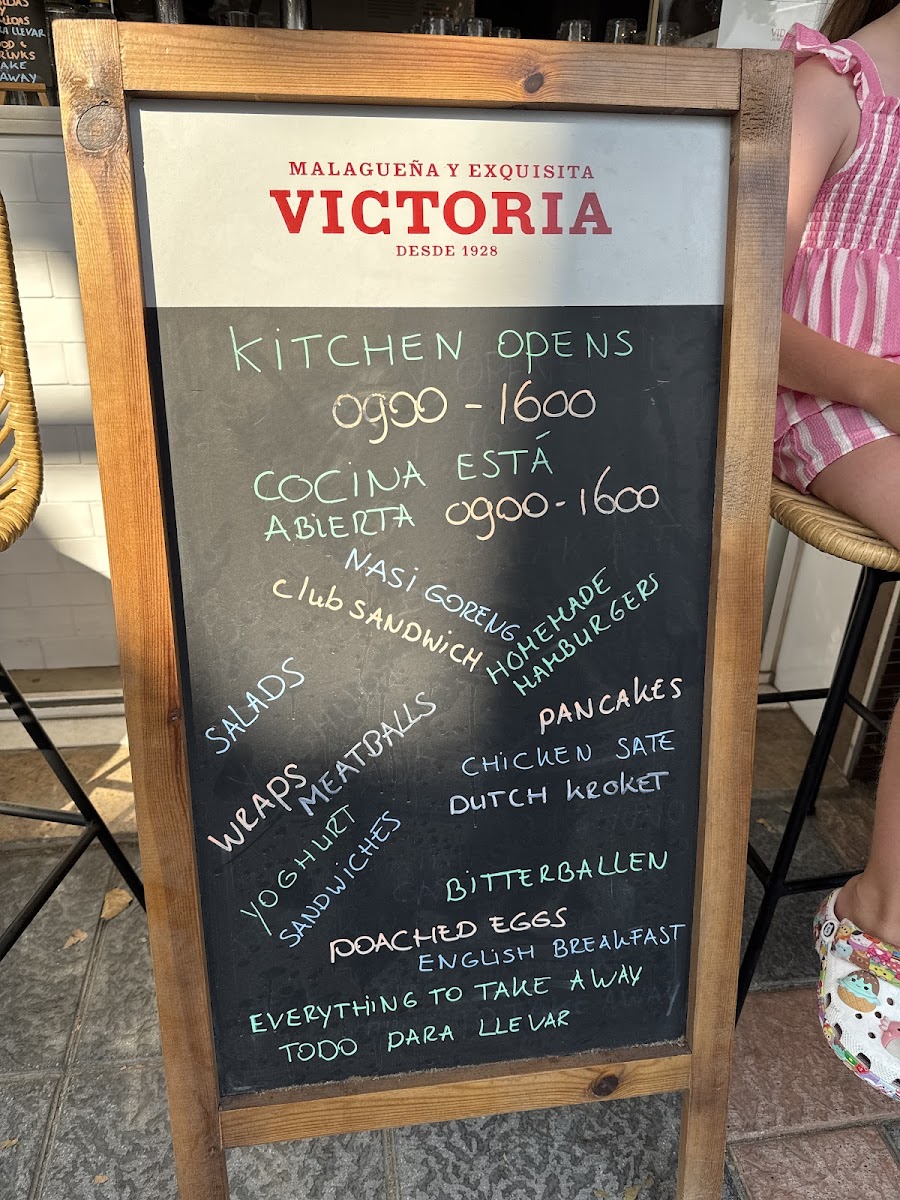 MALAGUEÑA Y EXQUISITA
VICTORIA
DESDE 1928
KITCHEN OPENS
0900 - 1600
COCINA ESTÁ
ABIERTA 0900 - 1600
NASI GORENG
Club SANDWICH
HOMEMADE
HAMBURGERS
SALADS
MEATBALLS
WRAPS
YOGHURT
SANDWICHES
PANCAKES
CHICKEN SATE
DUTCH KROKET
BITTERBALLEN
POACHED EGGS
ENGLISH BREAKFAST
EVERYTHING TO TAKE AWAY
TODO PARA LLEVAR
LLEVAR
TAKE
AWAY